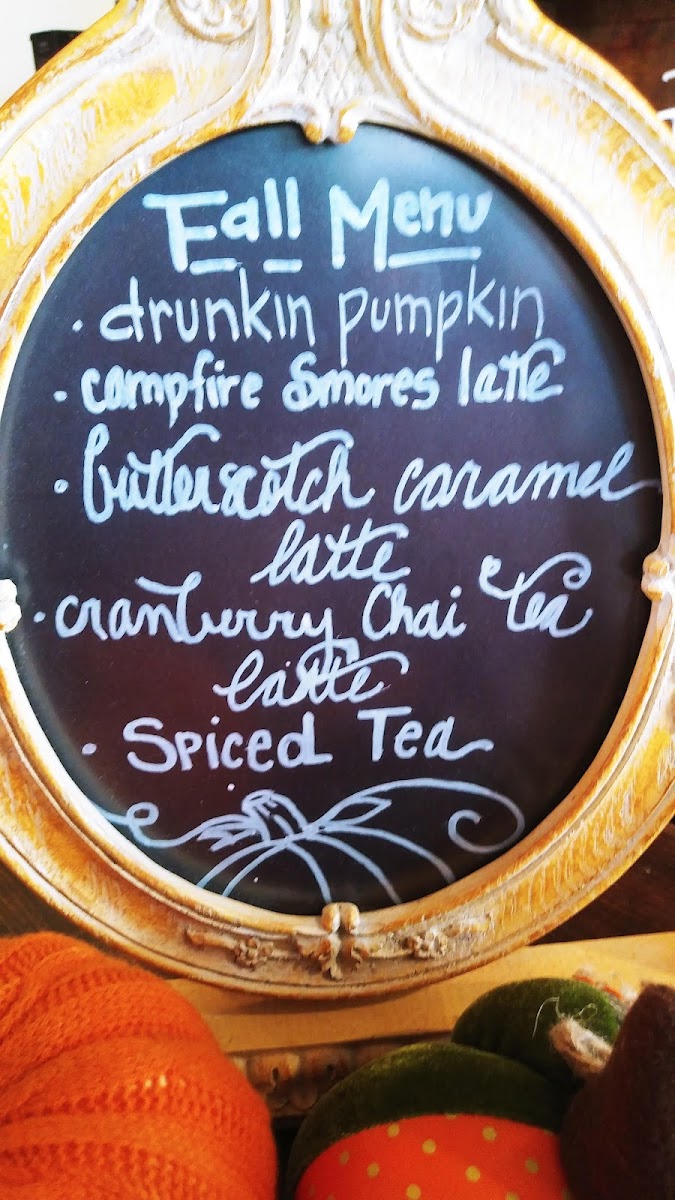 Fall Menu
· drunkin pumpkin
· campfire Smores latte
· butterscotch caramel
latte
· cranberry Chai Tea
latte
· Spiced Tea